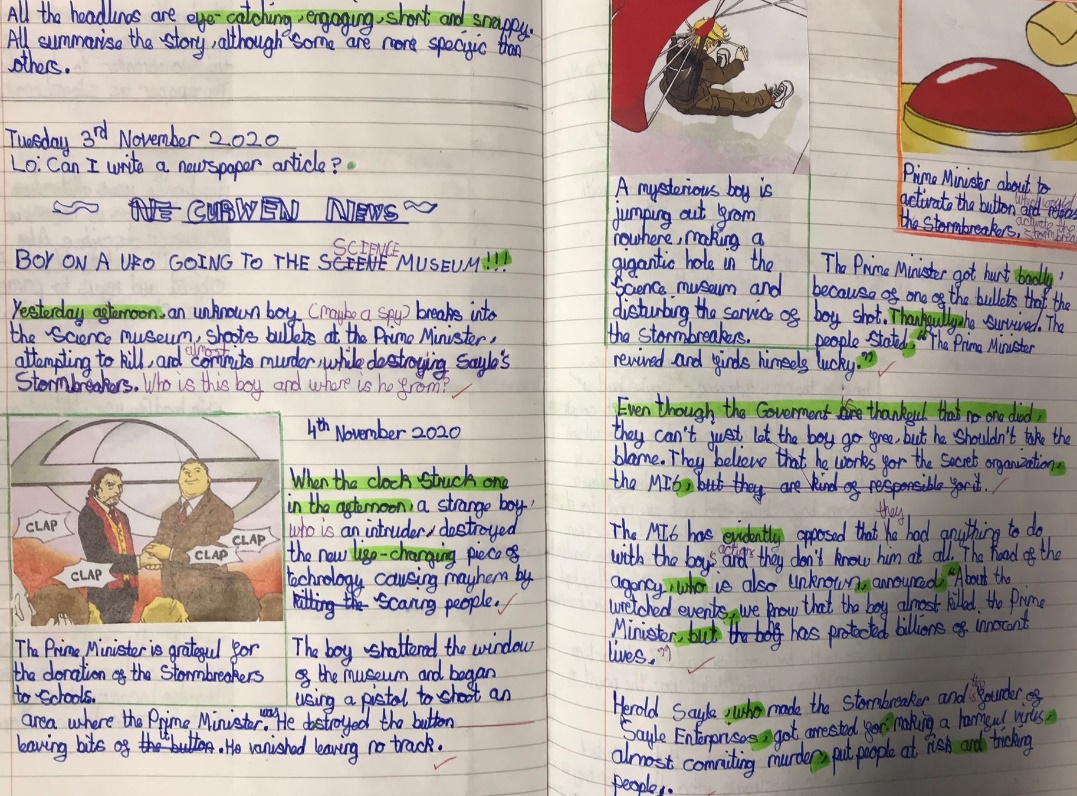 All the headlines are eye-catching, engaging, short and snappy.
All summarise the story, although some are more specific than
others.
Tuesday 3rd November 2020
Lo: Can I write a newspaper article?
CURWEN NEWS
SCIENCE
BOY ON A UFO GOING TO THE SCIENE MUSEUM!!!
Yesterday afternoon, an unknown boy (maybe a spy) breaks into
the Science museum, shoots bullets at the Prime Minister,
almost
attempting to kill, and commits murder, while destroying Sayle's
Stormbreakers. Who is this boy and where is he from?
CLAP
CLAP
CLAP
CLAP
The Prime Minister is grateful for
the donation of the Stormbreakers
to schools.
4th November 2020
When the clock struck one
in the afternoon, a strange boy,
who is an intruder, destroyed
the new life-changing piece of
technology causing mayhem by
killing the scaring people.
The boy shattered the window
of the museum and began
using a pistol to shoot an
area where the Prime Minister. was He dstroyed the button
leaving bits of the button. it. He vanished leaving no track.
A mysterious boy is
jumping out from
nowhere, making a
gigantic hole in the
Science museum and
disturbing the service of
the Stormbreakers.
Prime Minister about to
activate the button and
the Stormbreakers.
The Prime Minister got hurt badly
because of one of the bullets that the
boy shot. Thankfully, he survived. The
people stated, "The Prime Minister
revived and finds himself lucky."
Even though the Goverment is thankful that no one died,
they can't just let the boy go free, but he shouldn't take the
blame. They believe that he works for the secret organization,
the MI6, but they are kind of responsible for it.
they
The MI6 has evidently opposed that he had anything to do
with the boy's actions and they don't know him at all. The head of the
agency, who is also unknown, announced, "About the
wretched events, we know that the boy almost killed the Prime
Minister, but the boy has protected billions of innocent
lives."
Herold Sayle, who made the Stormbreaker and founder of
Sayle Enterprises, got arrested for making a harmful virus,
almost commiting murder, put people at risk and tricking
people.